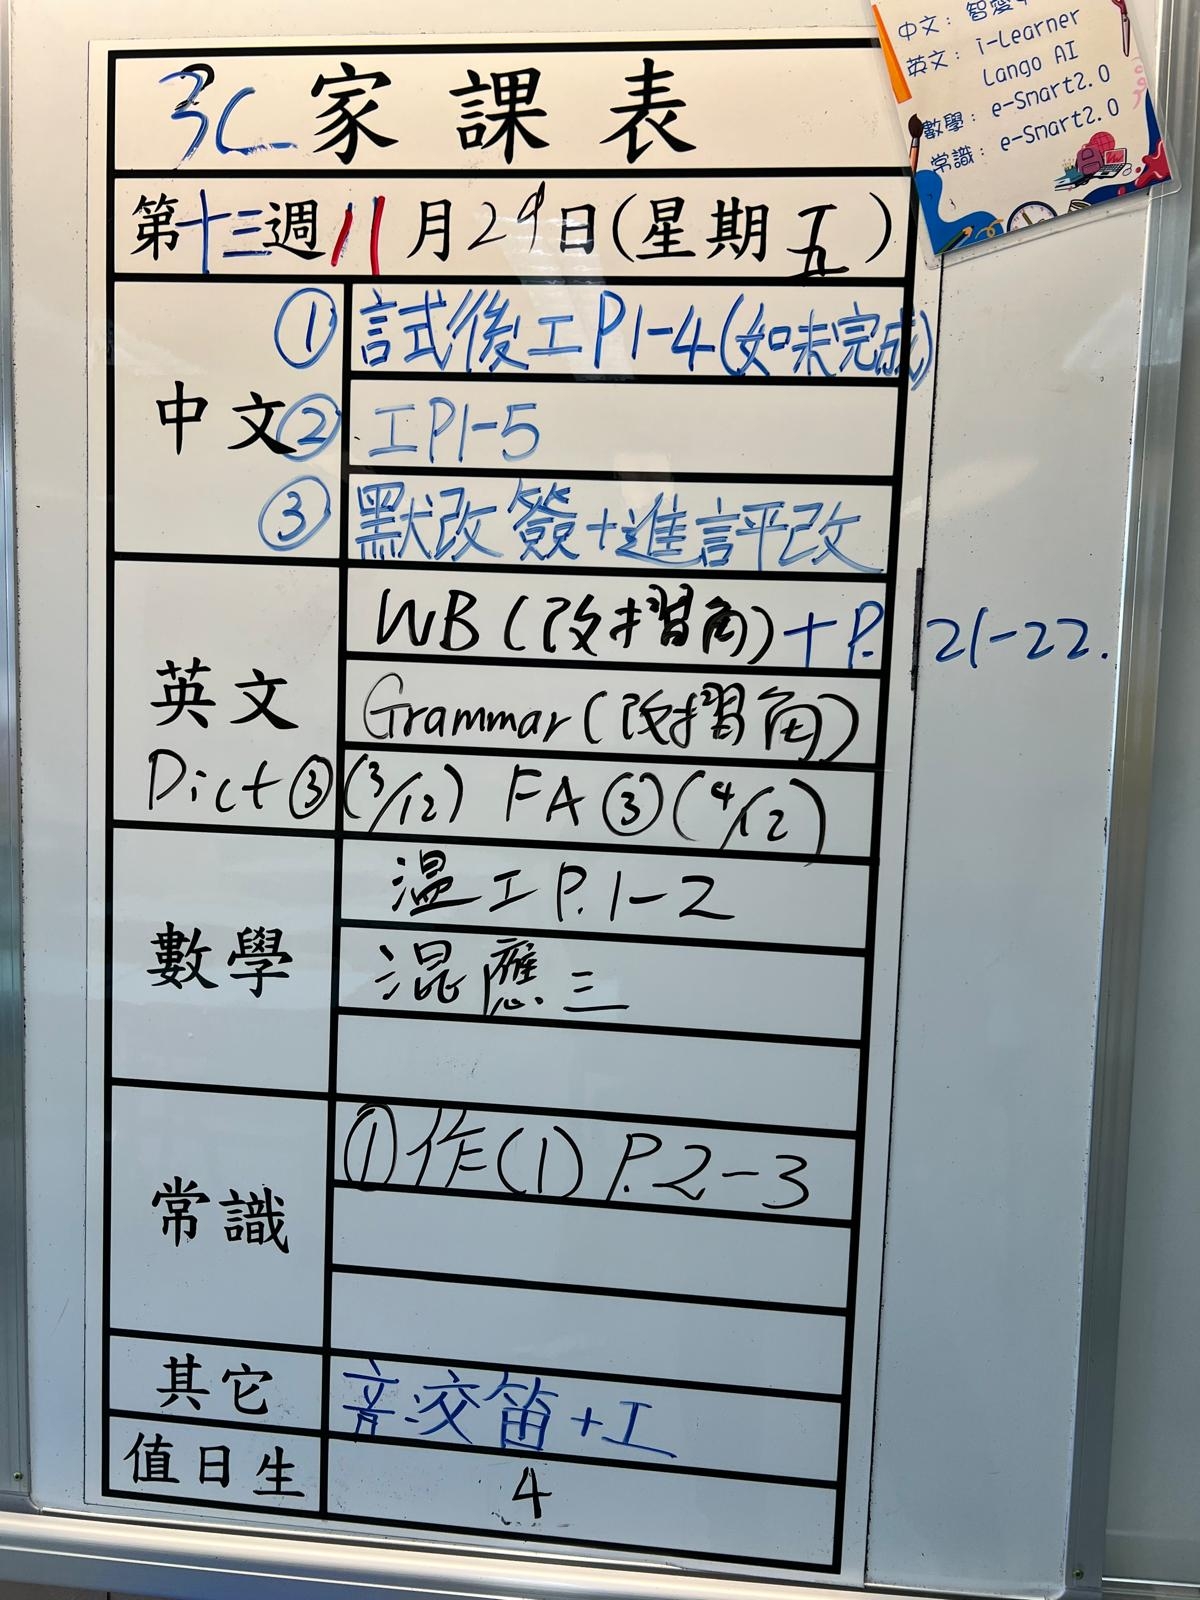 3C 家課表
第十三週 11月29日(星期五)
中文
① 試後工P1-4(如未完成)
② 工P1-5
③ 默改簽+進評改
英文
WB (改摺角)+P. 21-22.
Grammar (改摺角)
Dict ③ (3/12) FA ③ (4/12)
數學
溫工 P.1-2
混應三
常識
①作(1) P.2-3
其它
笛+工
值日生
4
中文:
英文: i-Learner
Lango AI
數學: e-Smart2.0
常識: e-Smart2.0